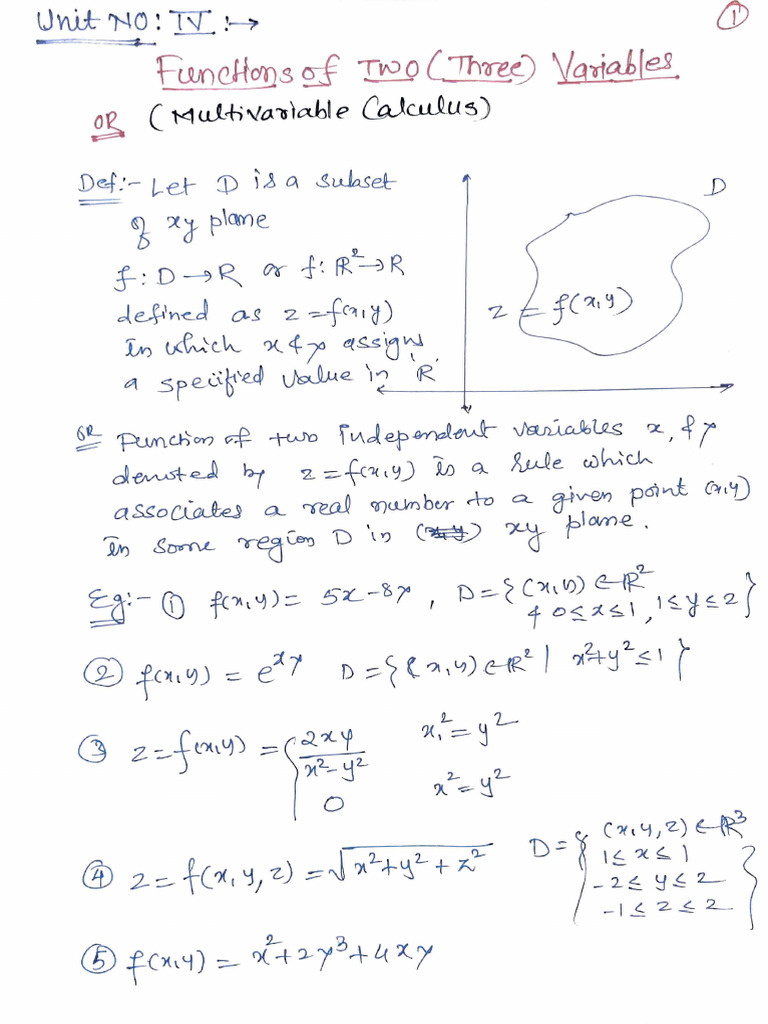 Unit NO: IV :→
1
Functions of Two (Three) Variables
OR (Multivariable Calculus)
Def:- Let D is a subset
of xy plane
f: D → R or f: ℝ² → R
defined as z = f(x,y)
in which x & y assigns
a specified value in 'R'
D
z = f(x,y)
OR Function of two independent variables x, & y
denoted by z = f(x,y) is a rule which
associates a real number to a given point (x,y)
in some region D in xy plane.
Eg:- ① f(x,y) = 5x - 8y , D = { (x,y) ∈ ℝ²
& 0 ≤ x ≤ 1, 1 ≤ y ≤ 2 }
② f(x,y) = e^xy D = { (x,y) ∈ ℝ² | x² + y² ≤ 1 }
③ z = f(x,y) = { 2xy / x² - y² x,² = y²
0 x² = y²
④ z = f(x,y,z) = √x² + y² + z² D = { (x,y,z) ∈ ℝ³
1 ≤ x ≤ 1
-2 ≤ y ≤ 2
-1 ≤ z ≤ 2 }
⑤ f(x,y) = x² + 2y³ + 4xy